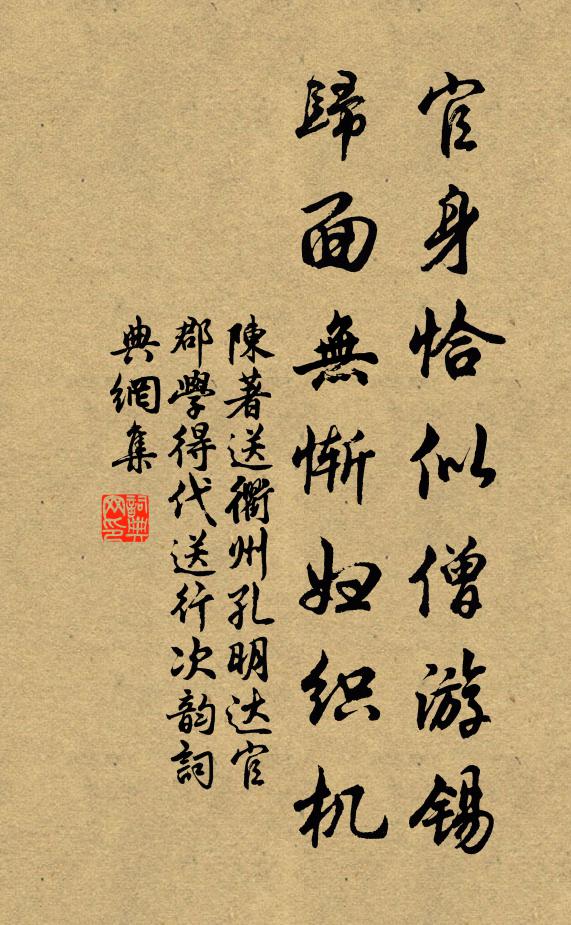 官身恰似僧游锡
歸面無慚妇织机
陳著送衢州孔明达官
郡學得代送行次韵詞
典網集
詞典网印